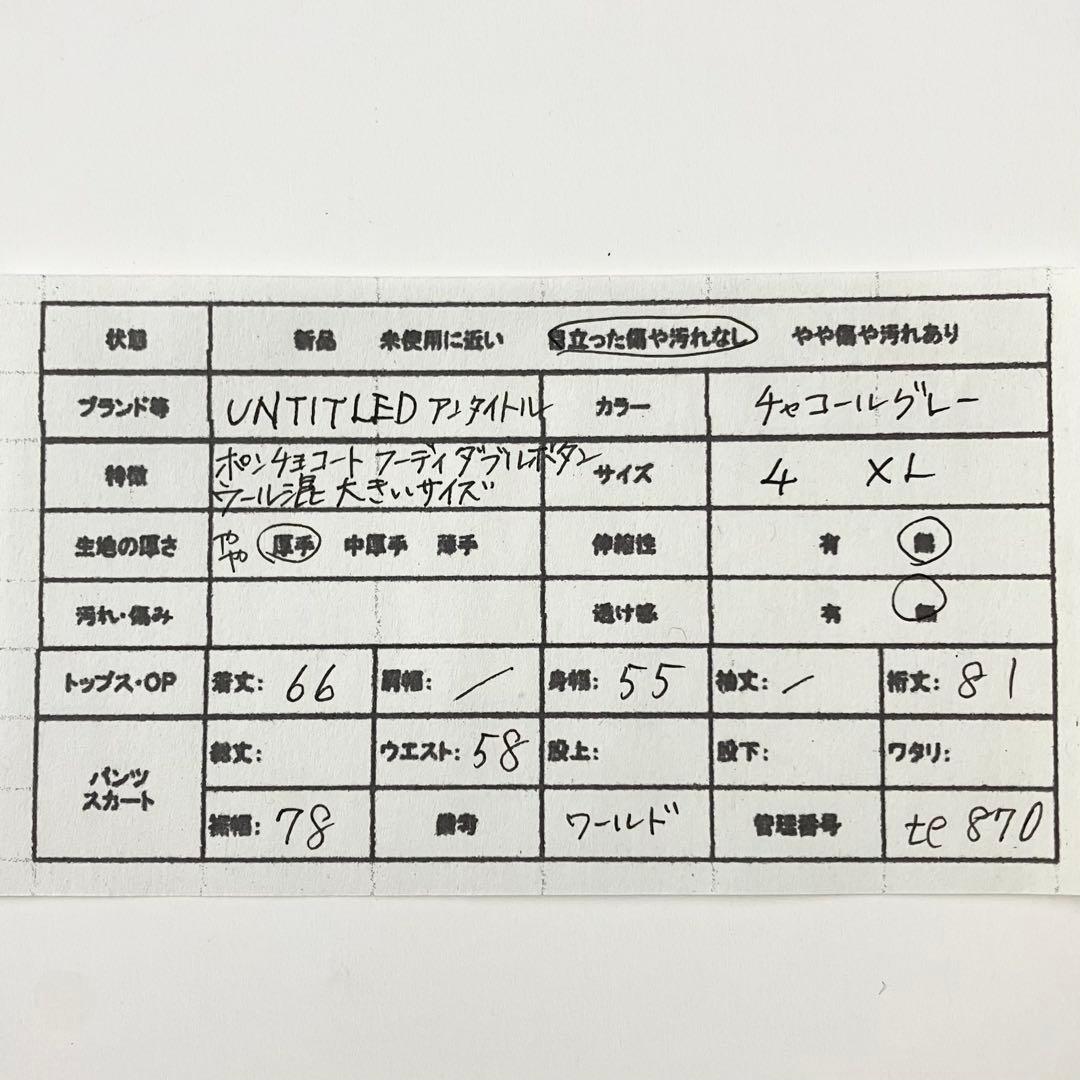 状態 新品 未使用に近い 目立った傷や汚れなし やや傷や汚れあり
ブランド等 UNTITLED アンタイトル カラー チャコールグレー
特徴 ポンチョコート フーディ ダブルボタン
ウール混 大きいサイズ サイズ 4 XL
生地の厚さ やや 厚手 中厚手 薄手 伸縮性 有 無
汚れ・傷み 透け感 有 無
トップス・OP 着丈: 66 肩幅: / 身幅: 55 袖丈: / 裄丈: 81
パンツ
スカート
総丈: ウエスト: 58 股上: 股下: ワタリ:
裾幅: 78 備考 ワールド 管理番号 te 870